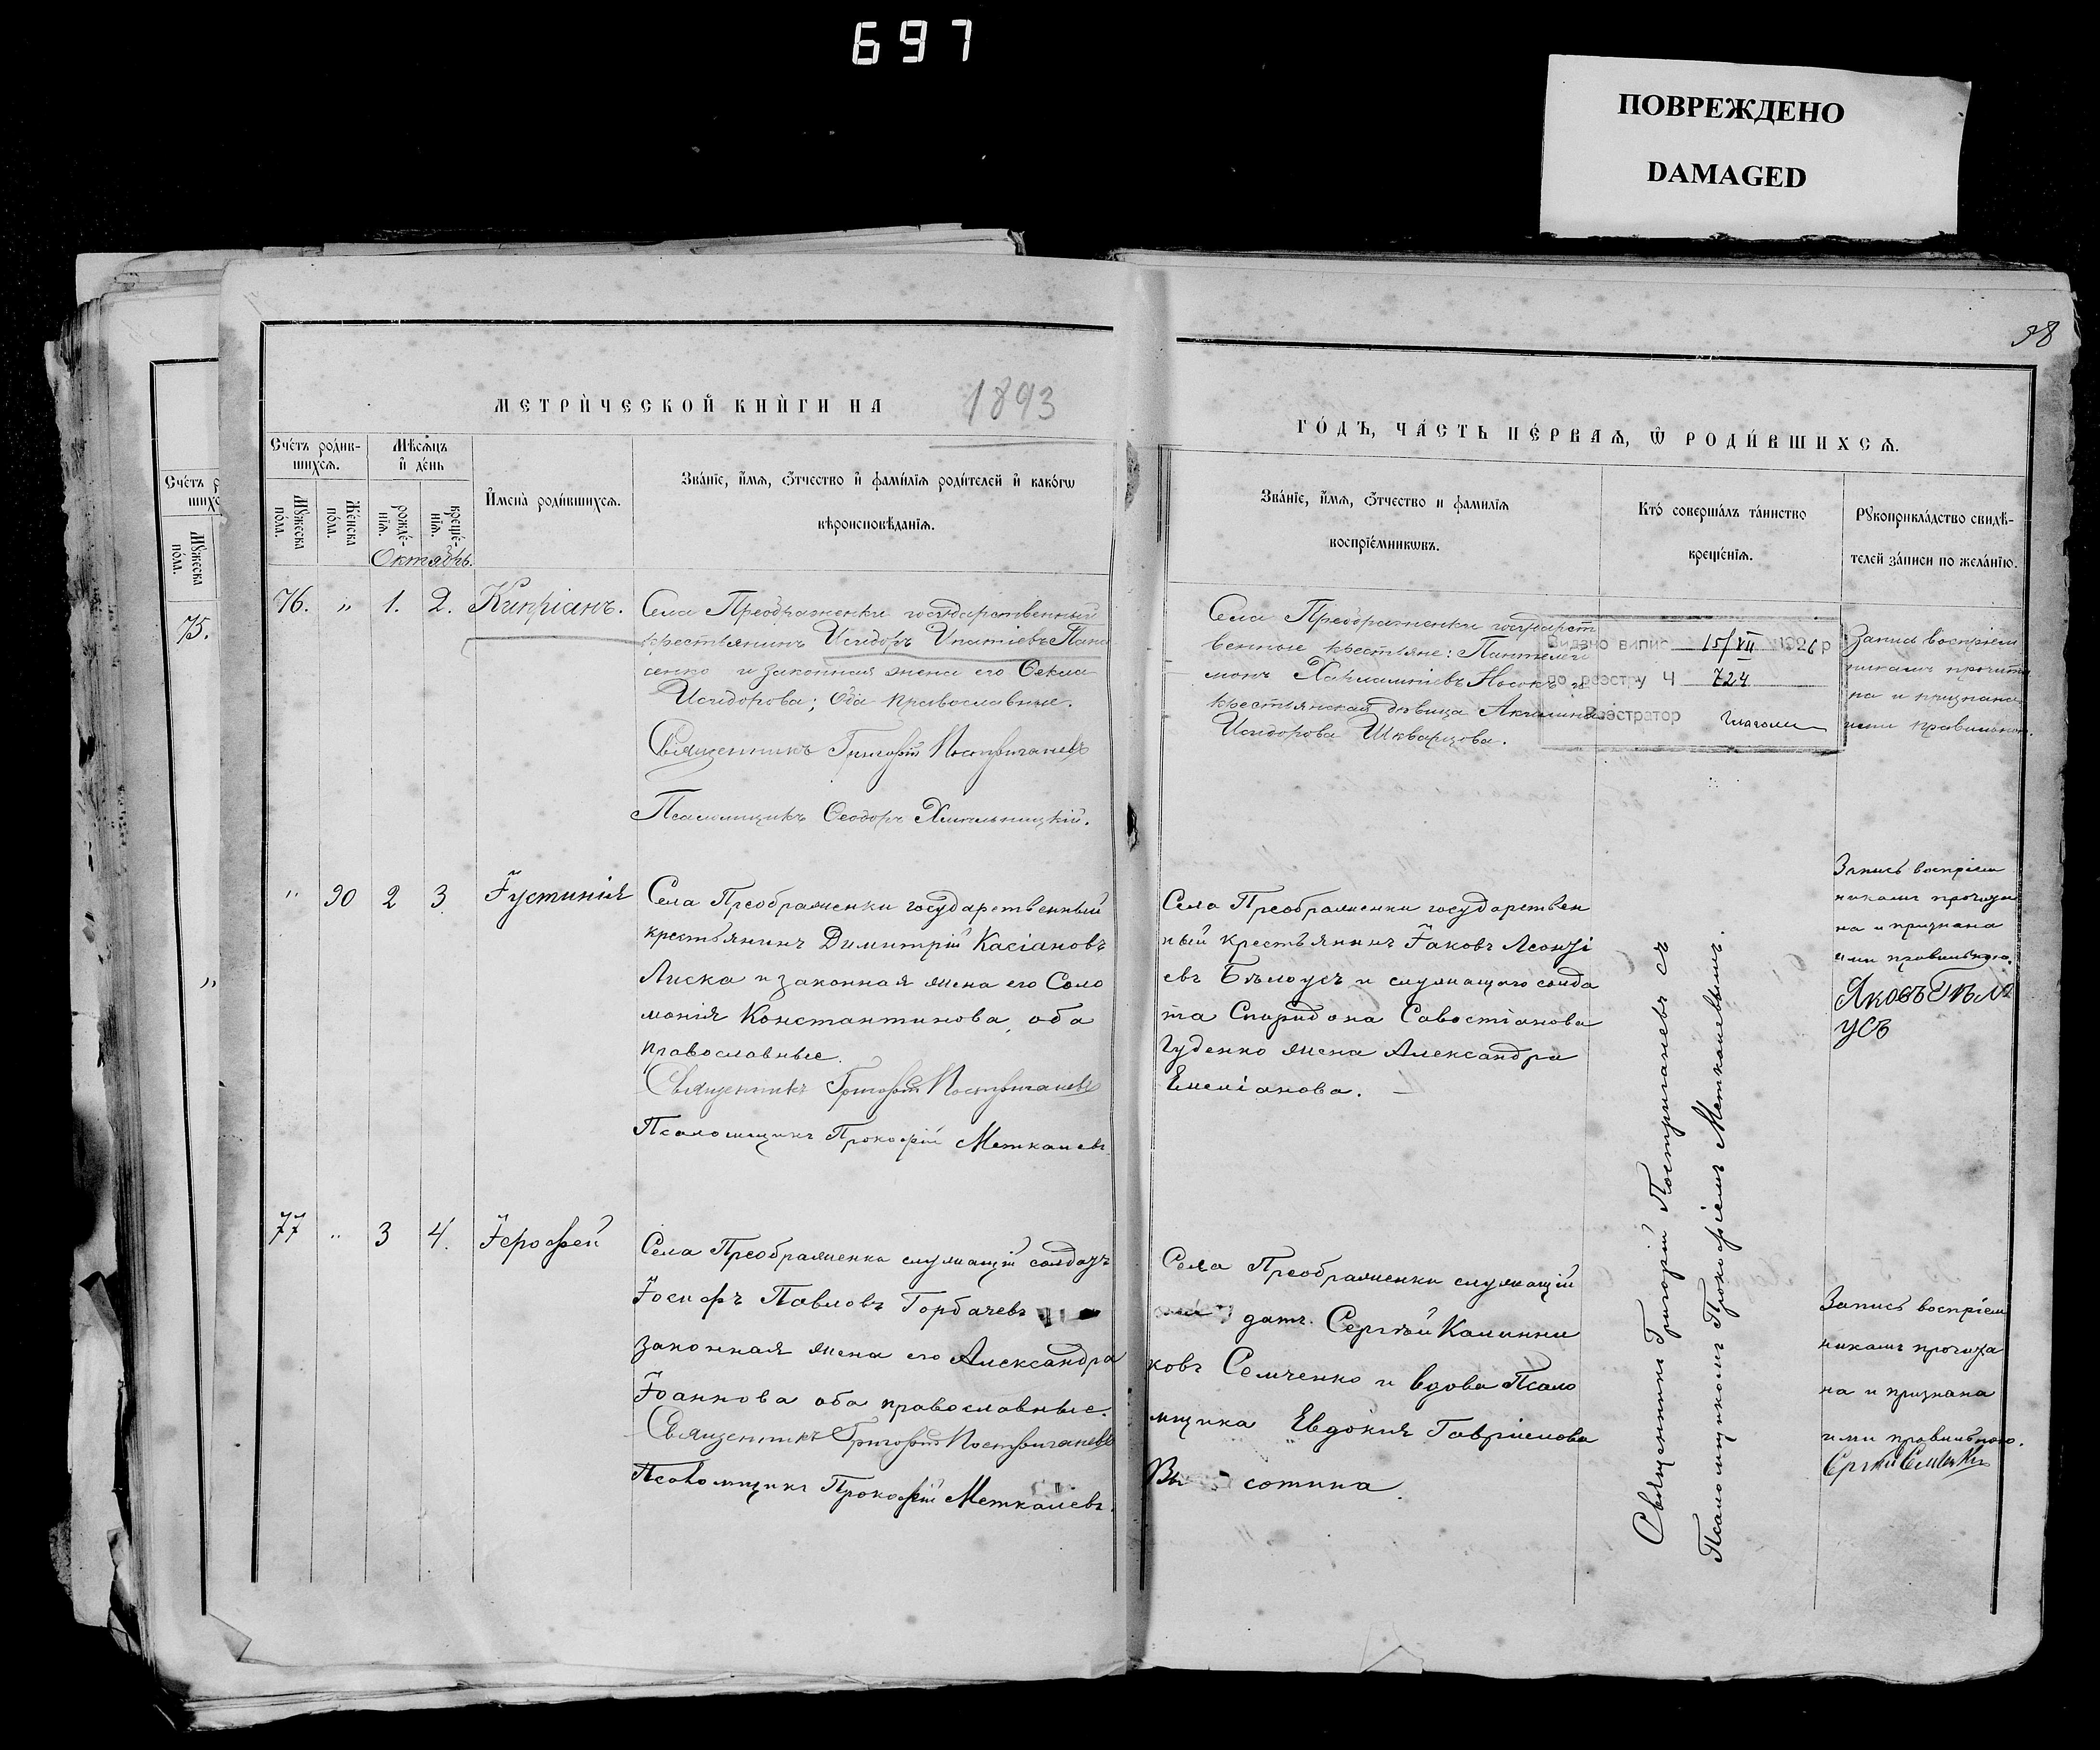 697
ПОВРЕЖДЕНО
DAMAGED
98
МЕТРИЧЕСКОЙ КНИГИ НА 1893
ГОДЪ, ЧАСТЬ ПЕРВАЯ, Ѡ РОДИВШИХСЯ.
Счетъ родив-
шихся.
Мѣсяцъ
и день
Мужеска пола.
Женска пола.
рожде-
нія.
креще-
нія.
Октябрь.
Имена родившихся.
Званіе, имя, отчество и фамилія родителей и какогѡ
вѣроисповѣданія.
Званіе, имя, отчество и фамилія
воспріемникѡвъ.
Кто совершалъ таинство
крещенія.
Рукоприкладство свидѣ-
телей записи по желанію.
Мужеска пола.
75.
"
76. " 1. 2. Кипріанъ.
Села Преображенки государственный
крестьянинъ Исидоръ Ипатіевъ Пана
сенко и законная жена его Ѳекла
Исидорова; оба православные.
Священникъ Григорій Постригачевъ
Псаломщикъ Ѳеодоръ Хмельницкій.
Села Преображенки государст
венные крестьяне: Пантелей
монъ Харлампіевъ Носокъ и
крестьянская дѣвица Акилина
Исидорова Шкварцова.
Видано випис 15/VII 1926 р
по реэстру Ч 724
Реэстратор
Запись воспріем
никамъ прочита
на и признана
ими правильною.
" 90 2 3. Іустинія
Села Преображенки государственный
крестьянинъ Димитрій Касіановъ
Лиска и законная жена его Соло
монія Константинова, оба
православные.
Священникъ Григорій Постригачевъ
Псаломщикъ Прокофій Меткалевъ.
Села Преображенки государствен
ный крестьянинъ Іаковъ Леонті
евъ Бѣлоусъ и служащаго солда
та Спиридона Савостіанова
Гуденко жена Александра
Емеліанова.
Запись воспріем
никамъ прочита
на и признана
ими правильною.
Яковъ Бѣло
усъ
77 " 3 4. Іерофей
Села Преображенки служащій солдатъ
Іосифъ Павловъ Горбачевъ
законная жена его Александра
Іоаннова оба православные.
Священникъ Григорій Постригачевъ
Псаломщикъ Прокофій Меткалевъ.
Села Преображенки служащій
датъ. Сергѣй Калинни
ковъ Семченко и вдова Псало
мщика Евдокія Гавріилова
Вы сотина.
Запись воспріем
никамъ прочита
на и признана
ими правильною.
Священникъ Григорій Постригачевъ съ
Псаломщикомъ Прокофіемъ Меткалевымъ.